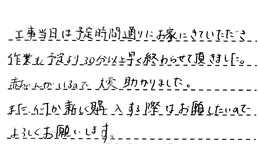 工事当日は予定時間通りにお家にきていただき
作業も予定より30分以上早く終わらせて頂きました。
赤ちゃんがいるので大変助かりました。
また、何か新しく購入する際はお願いしたいので
よろしくお願いします。